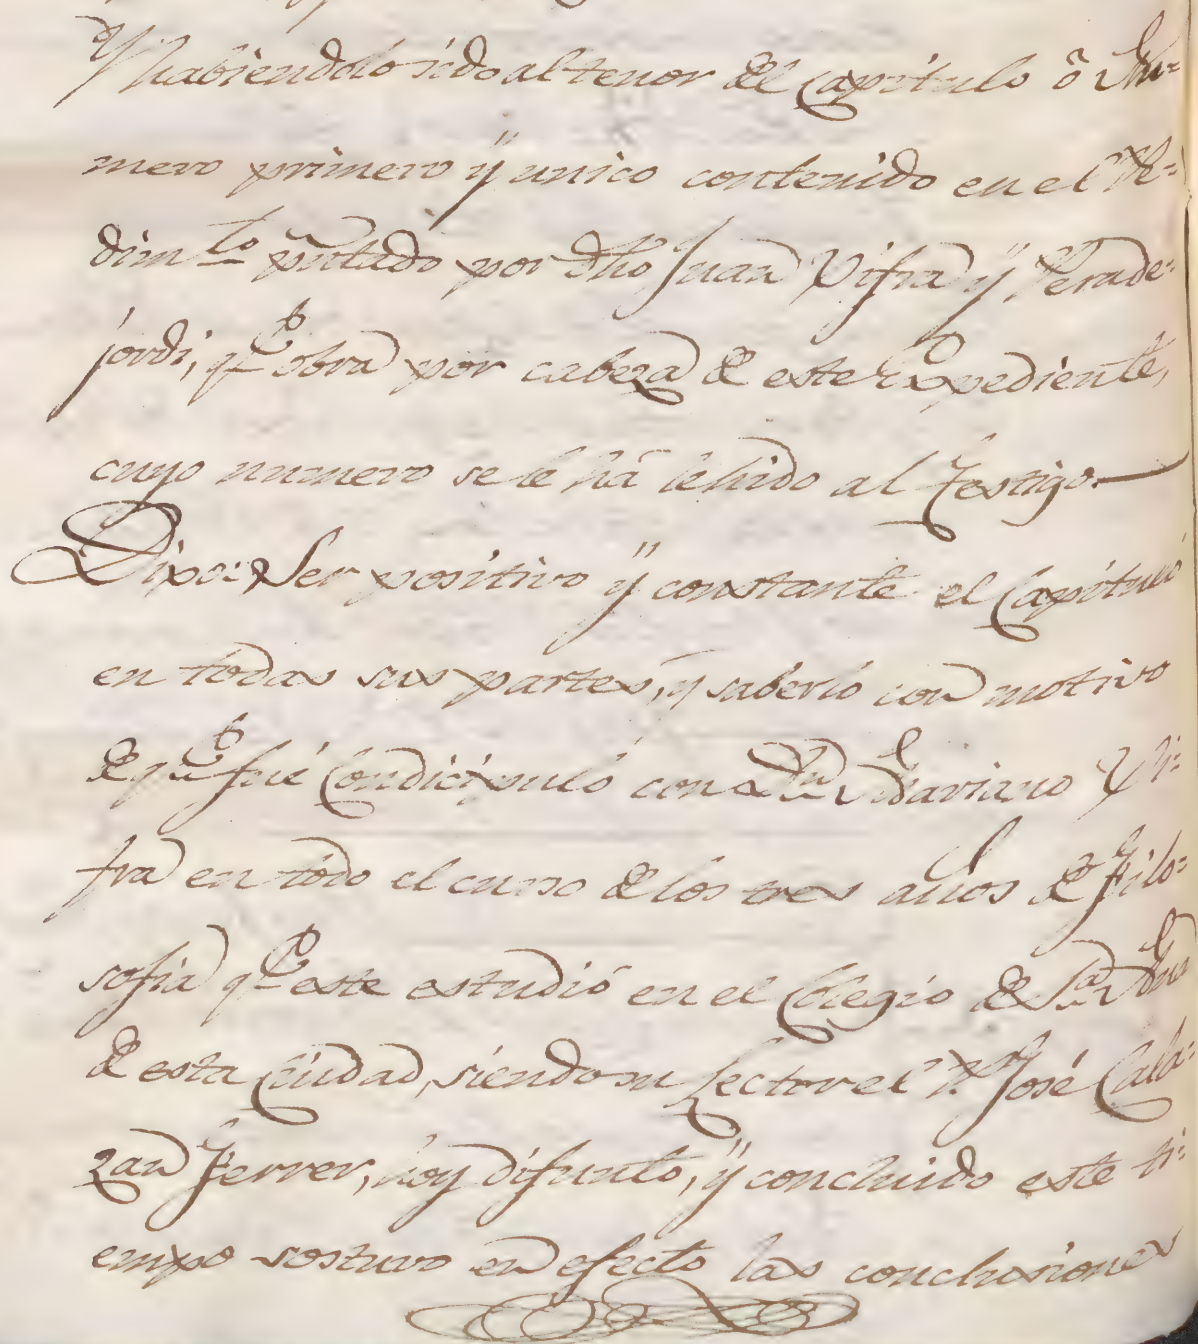 Y habiendolo sido al tenor del Capitulo ô Nu=
mero primero ÿ unico contenido en el Pe=
dim.to pñtado por dho Juan Vifra ÿ Perade=
jordi, q.e obra por cabeza de este Expediente,
cuyo numero se le há lehido al Testigo.—
Dixo: Ser positivo ÿ constante el Capitulo
en todas sus partes, y saberlo con motivo
de q.e fué Condicipulo con D.n Mariano Vi=
fra en todo el curso de los tres años de Filo=
sofia q.e este estudió en el Colegio de S.ta Ana
de esta Ciudad, siendo su Lector el P. José Cala=
zan Ferrer, hoy difunto, ÿ concluido este ti=
empo sostuvo en efecto las conclusiones